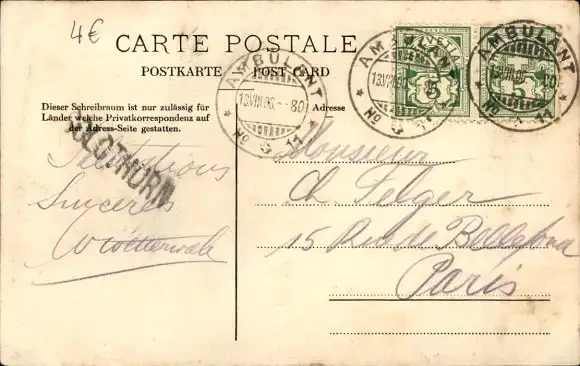 4€
CARTE POSTALE
POSTKARTE POST CARD
Dieser Schreibraum ist nur zulässig für
Länder welche Privatkorrespondenz auf
der Adress-Seite gestatten.
Adresse
AMBULANT
13.VIII.06.–80
No 3 11
AMBULANT
No 3 11
AMBULANT
No 3 11
HELVETIA
5
5
SOLOTHURN
Salutations
Sincères
Monsieur
Ch Felger
15 Rue de Bellefond
Paris